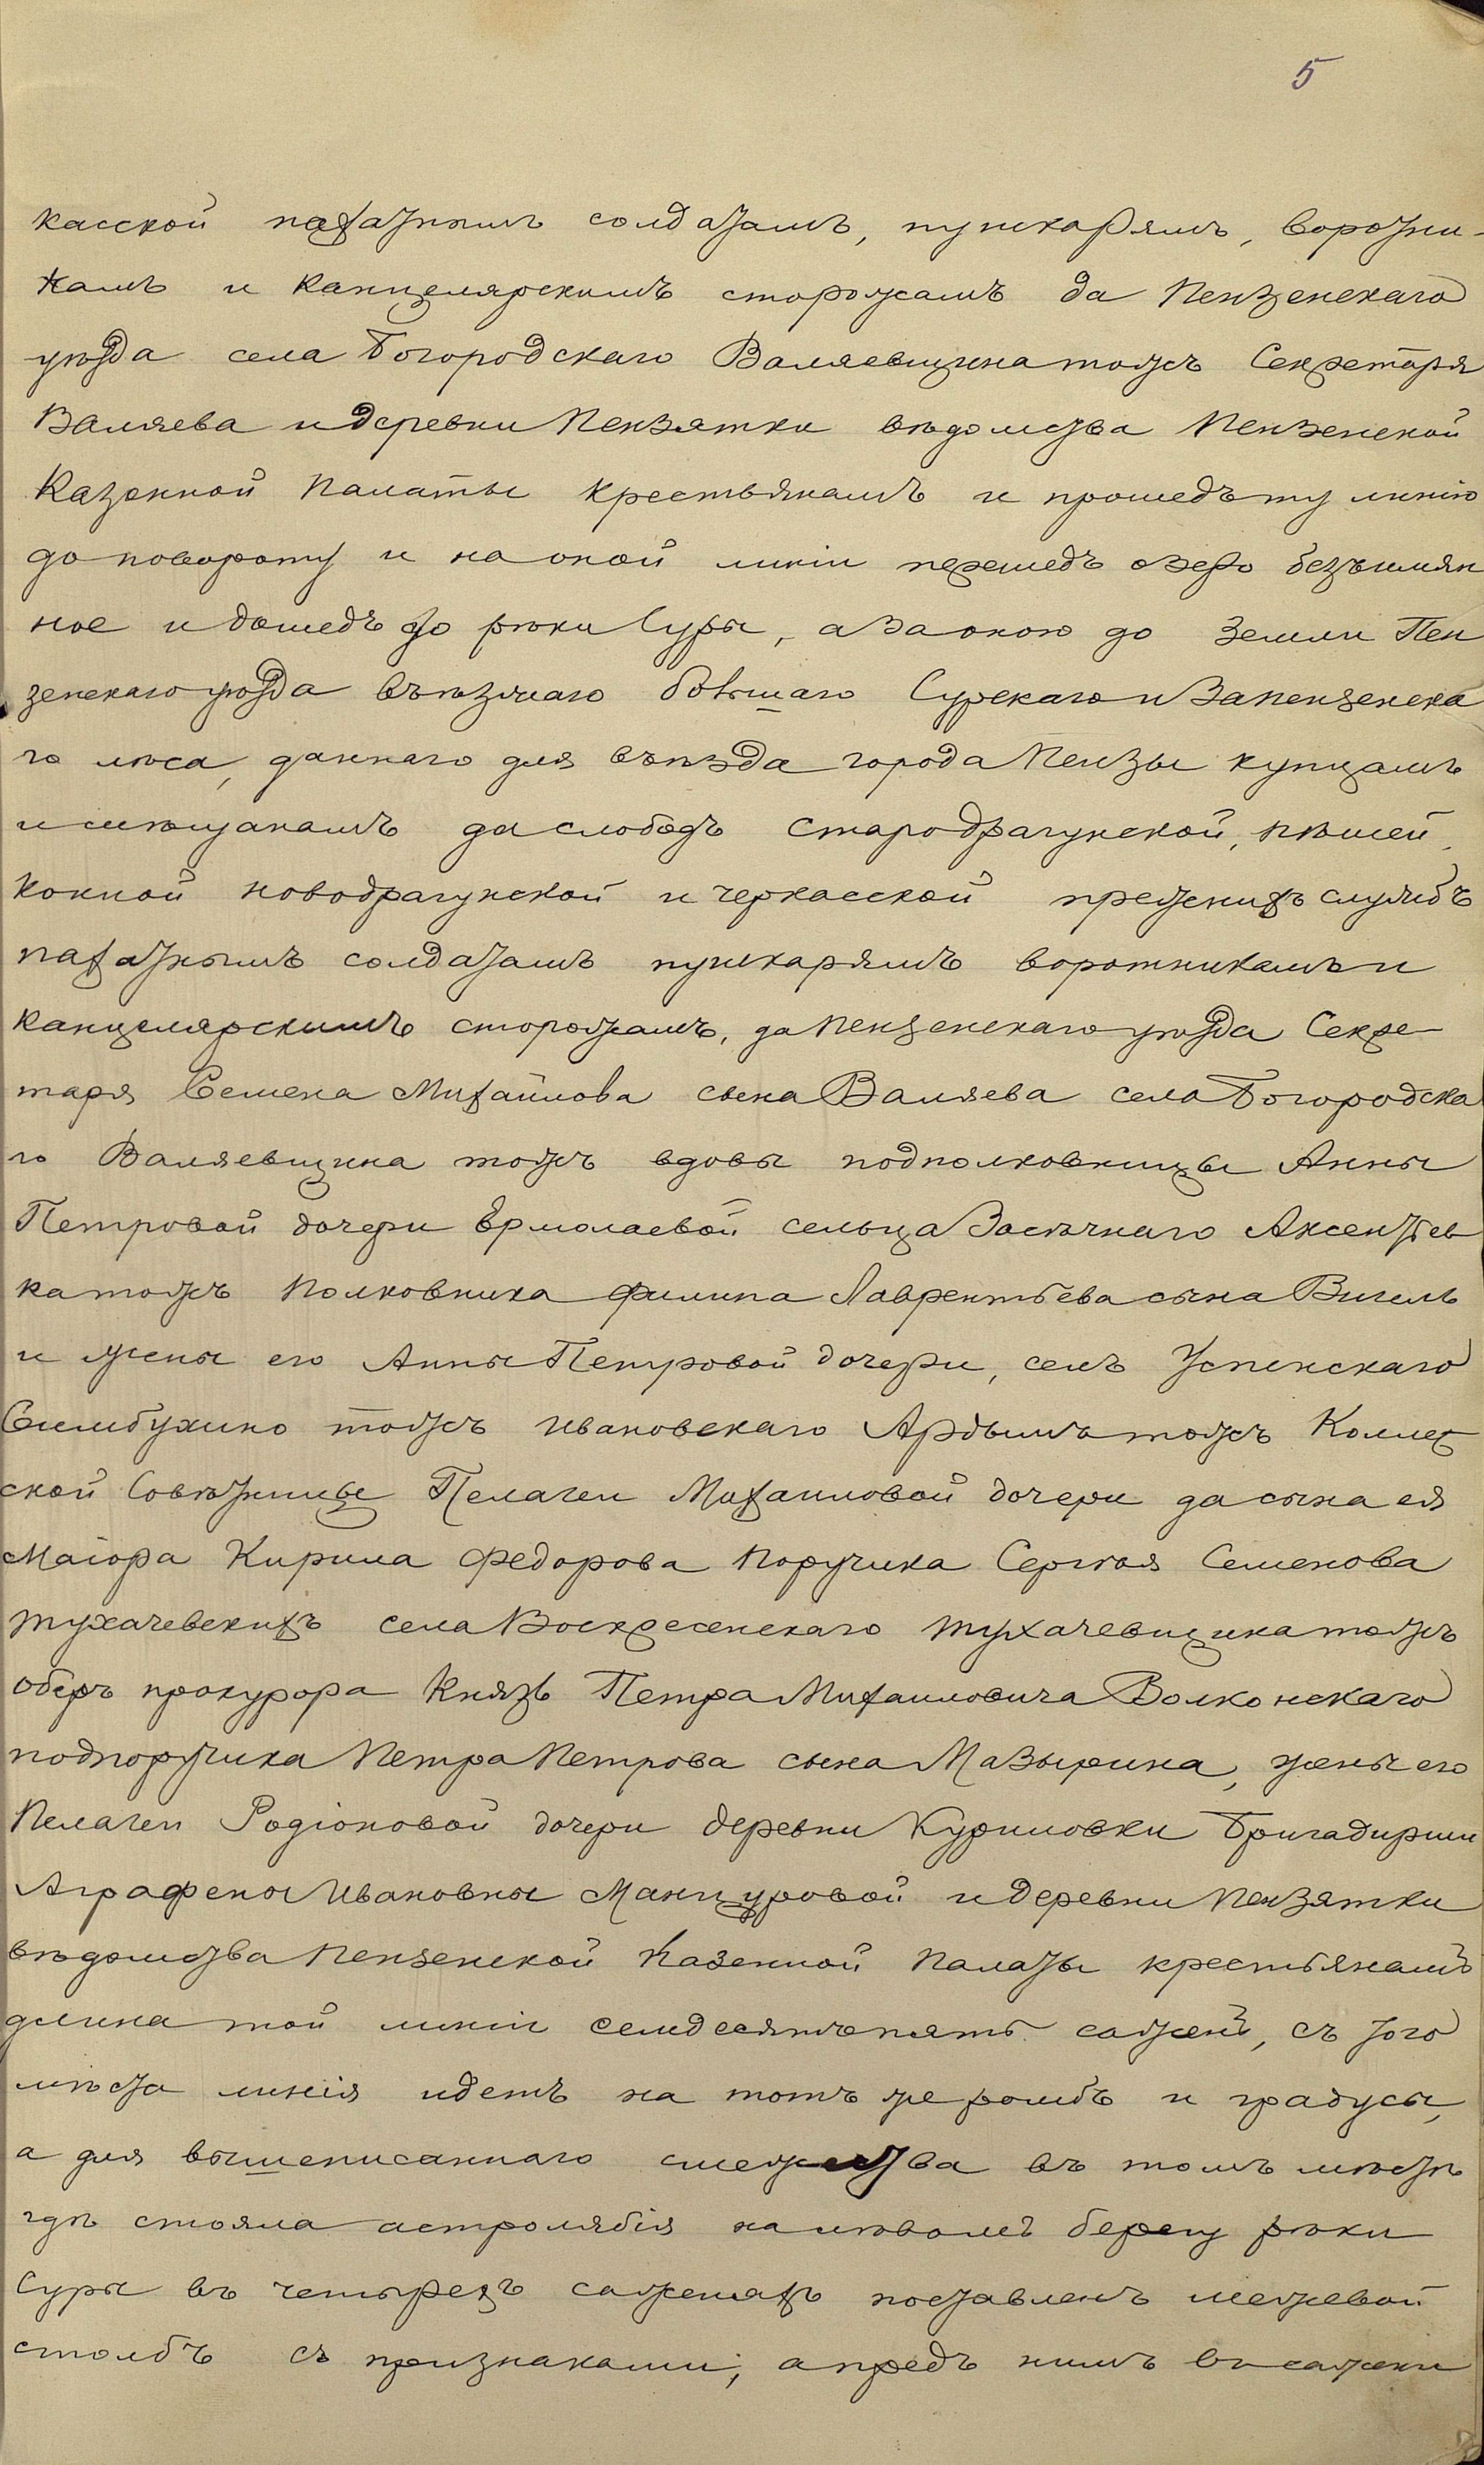 5
касской пахатнымъ солдатамъ, пушкарямъ, воротни-
камъ и канцелярскимъ сторожамъ да Пензенскаго
уѣзда села Богородскаго Валяевщина тожъ Секретаря
Валяева и деревни Пензятки вѣдомства Пензенской
Казенной Палаты крестьянамъ и прошедъ ту линію
до повороту и на оной линіи перешедъ озеро безъимян
ное и дошедъ до рѣки Суры, а за оною до земли Пен
зенскаго уѣзда въѣзжаго большаго Сурскаго и Запензенска
го лѣса, даннаго для въѣзда города Пензы купцамъ
и мѣщанамъ да слободъ стародрагунской, пѣшей,
конной новодрагунской и черкасской прежнихъ службъ
пахатнымъ солдатамъ пушкарямъ воротникамъ и
канцелярскимъ сторожамъ, да Пензенскаго уѣзда Секре-
таря Семена Михайлова сына Валяева села Богородска
го Валяевщина тожъ вдовы подполковницы Анны
Петровой дочери Ермолаевой сельца Засѣчнаго Аксентьев
ка тожъ Полковника Филипа Лаврентьева сына Вигель
и жены его Анны Петровой дочери, селъ Успенскаго
Симбухино тожъ Ивановскаго Ардымъ тожъ Коллеж
ской Совѣтницы Пелагеи Михаиловой дочери да сына ея
Маіора Кирила Федорова Поручика Сергѣя Семенова
Тухачевскихъ села Воскресенскаго Тухачевщина тожъ
оберъ прокурора Князь Петра Михаиловича Волконскаго
подпоручика Петра Петрова сына Мазырина, жены его
Пелагеи Родіоновой дочери деревни Куриловки Бригадирши
Аграфены Ивановны Манцуровой и деревни Пензятки
вѣдомства Пензенской Казенной Палаты крестьянамъ
длина той линіи семдесятъ пять сажень, съ того
мѣста линія идетъ на тотъ же ромбъ и градусы,
а для вышеписаннаго смежства въ томъ мѣстѣ
гдѣ стояла астролябія на лѣвомъ берегу рѣки
Суры въ четырехъ саженяхъ поставленъ межевой
столбъ съ признаками, а предъ нимъ въ сажени